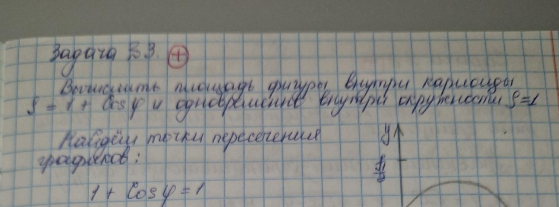 Задача №3. +
Вычислить площадь фигуры внутри кардиоиды
ρ = 1 + Cosφ и одновременно внутри окружности ρ=1
Найдём точки пересечения
графиков:
y
1 + Cosφ = 1